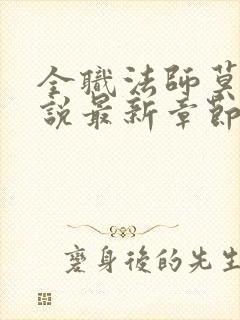 全職法師莫
說最新章節
褻身後的先生